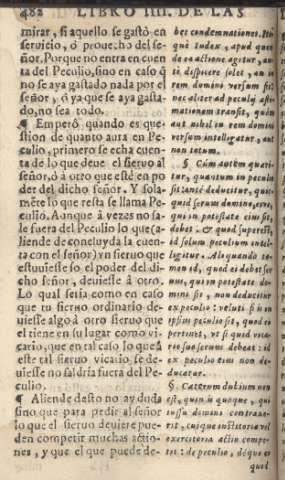 482 LIBRO IIII. DE LAS
mirar, si aquello se gastò en
seruicio, ó proue, ho del señor.
Porque no entra en cuenta
del Peculio, sino en caso q̃
no se aya gastado nada por el
señor, ó ya que se aya gastado,
no sea todo.
¶ Emperó quando es question
de quanto aura en Peculio,
primero se echa cuenta
de lo que deue el sieruo al
señor, ó à otro que esté en poder
del dicho señor. Y solamẽte
lo que resta se llama Peculio.
Aunque à vezes no sale
fuera del Peculio lo que (aliende
de concluyda la cuenta
con el señor) vn sieruo que
estuuiesse so el poder del dicho
señor, deuiesse à otro.
Lo qual seria como en caso
que tu sieruo ordinario deuiesse
algo à otro sieruo que
el tiene en su lugar como vicario,
que en tal caso lo que à
este tal sieruo vicario se deuiesse
no saldria fuera del Peculio.
¶ Aliende desto no ay duda
sino que para pedir al señor
lo que el sieruo deuiere pueden
competir muchas actiones,
y que el que puede de-
ber condemnationes. Itaque
iudex, apud quem
de ea actione agitur, ante
dispicere solet, an in
rem domini versum sit:
nec aliter ad peculij æstimationem
transit, quàm
aut nihil in rem domini
versum intelligatur, aut
non totum.
§. Cùm autem quæritur,
quantum in peculio
sit: antè deducitur, quicquid
seruus domino, eiue,
qui in potestate eius sit,
debet. & quod superest,
id solum peculium intelligitur.
Aliquando tamen
id, quod ei debet seruus,
qui in potestate domini
sit, non deducitur
ex peculio: veluti si is in
ipsius peculio sit, quod eò
pertinet, vt si quid vicario
suo seruus debet: id
ex peculio eius non deducatur.
§. Cæterum dubium non
est, quin is quoque, qui
iussu domini contraxerit,
cuique institoria vel
exercitoria actio competit:
de peculio, déque eo
quod